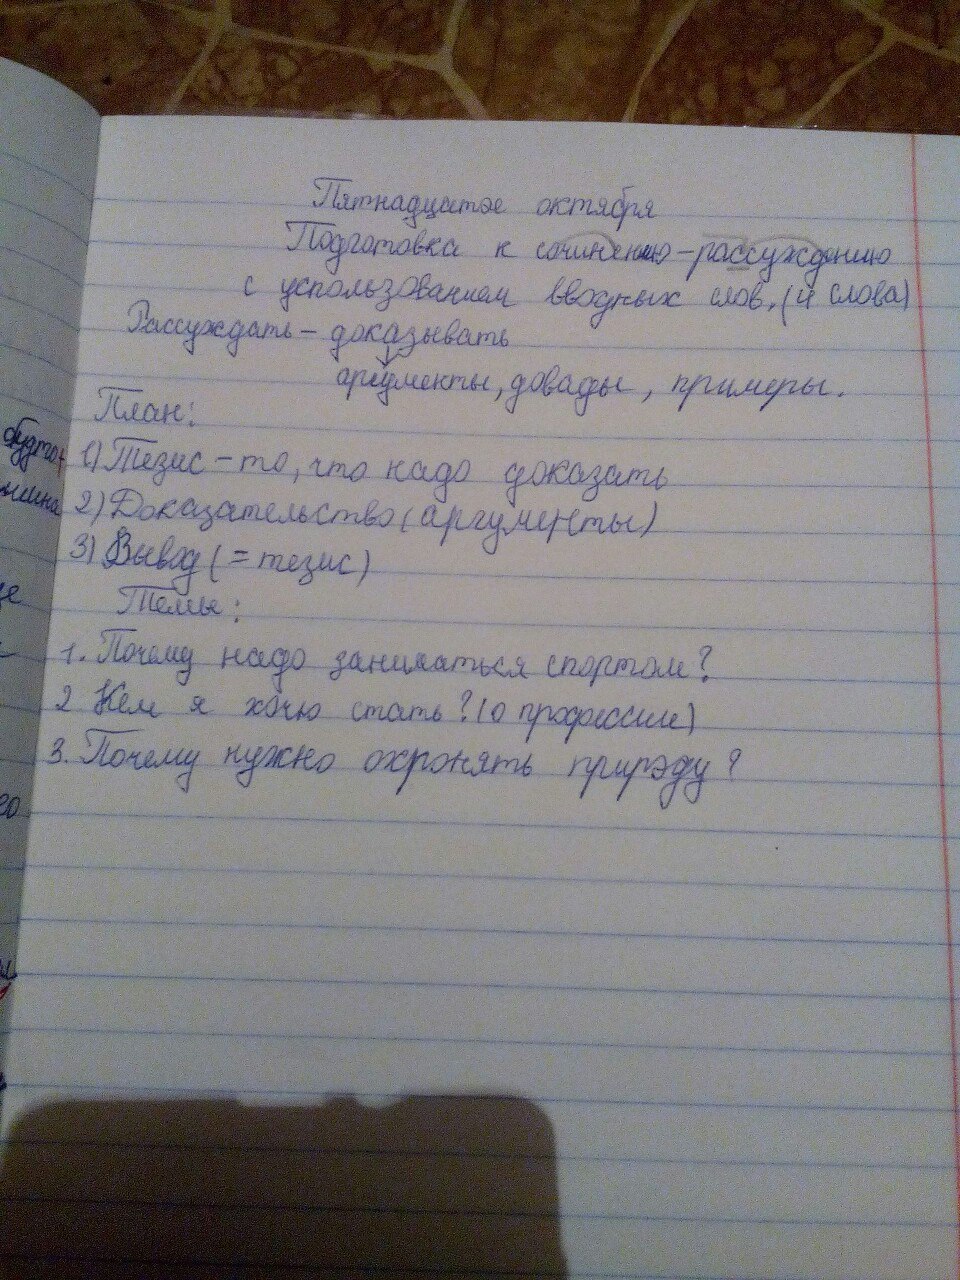 Пятнадцатое октября
Подготовка к сочинению-рассуждению
с успользованием вводных слов. (4 слова)
Рассуждать - доказывать
аргументы, довады, примеры.
План:
1) Тезис - то, что надо доказать
2) Доказательство (аргументы)
3) Вывод (= тезис)
Темы:
1. Почему надо заниматься спортом?
2 Кем я хочу стать? (о профессии)
3. Почему нужно охронять природу?
будто